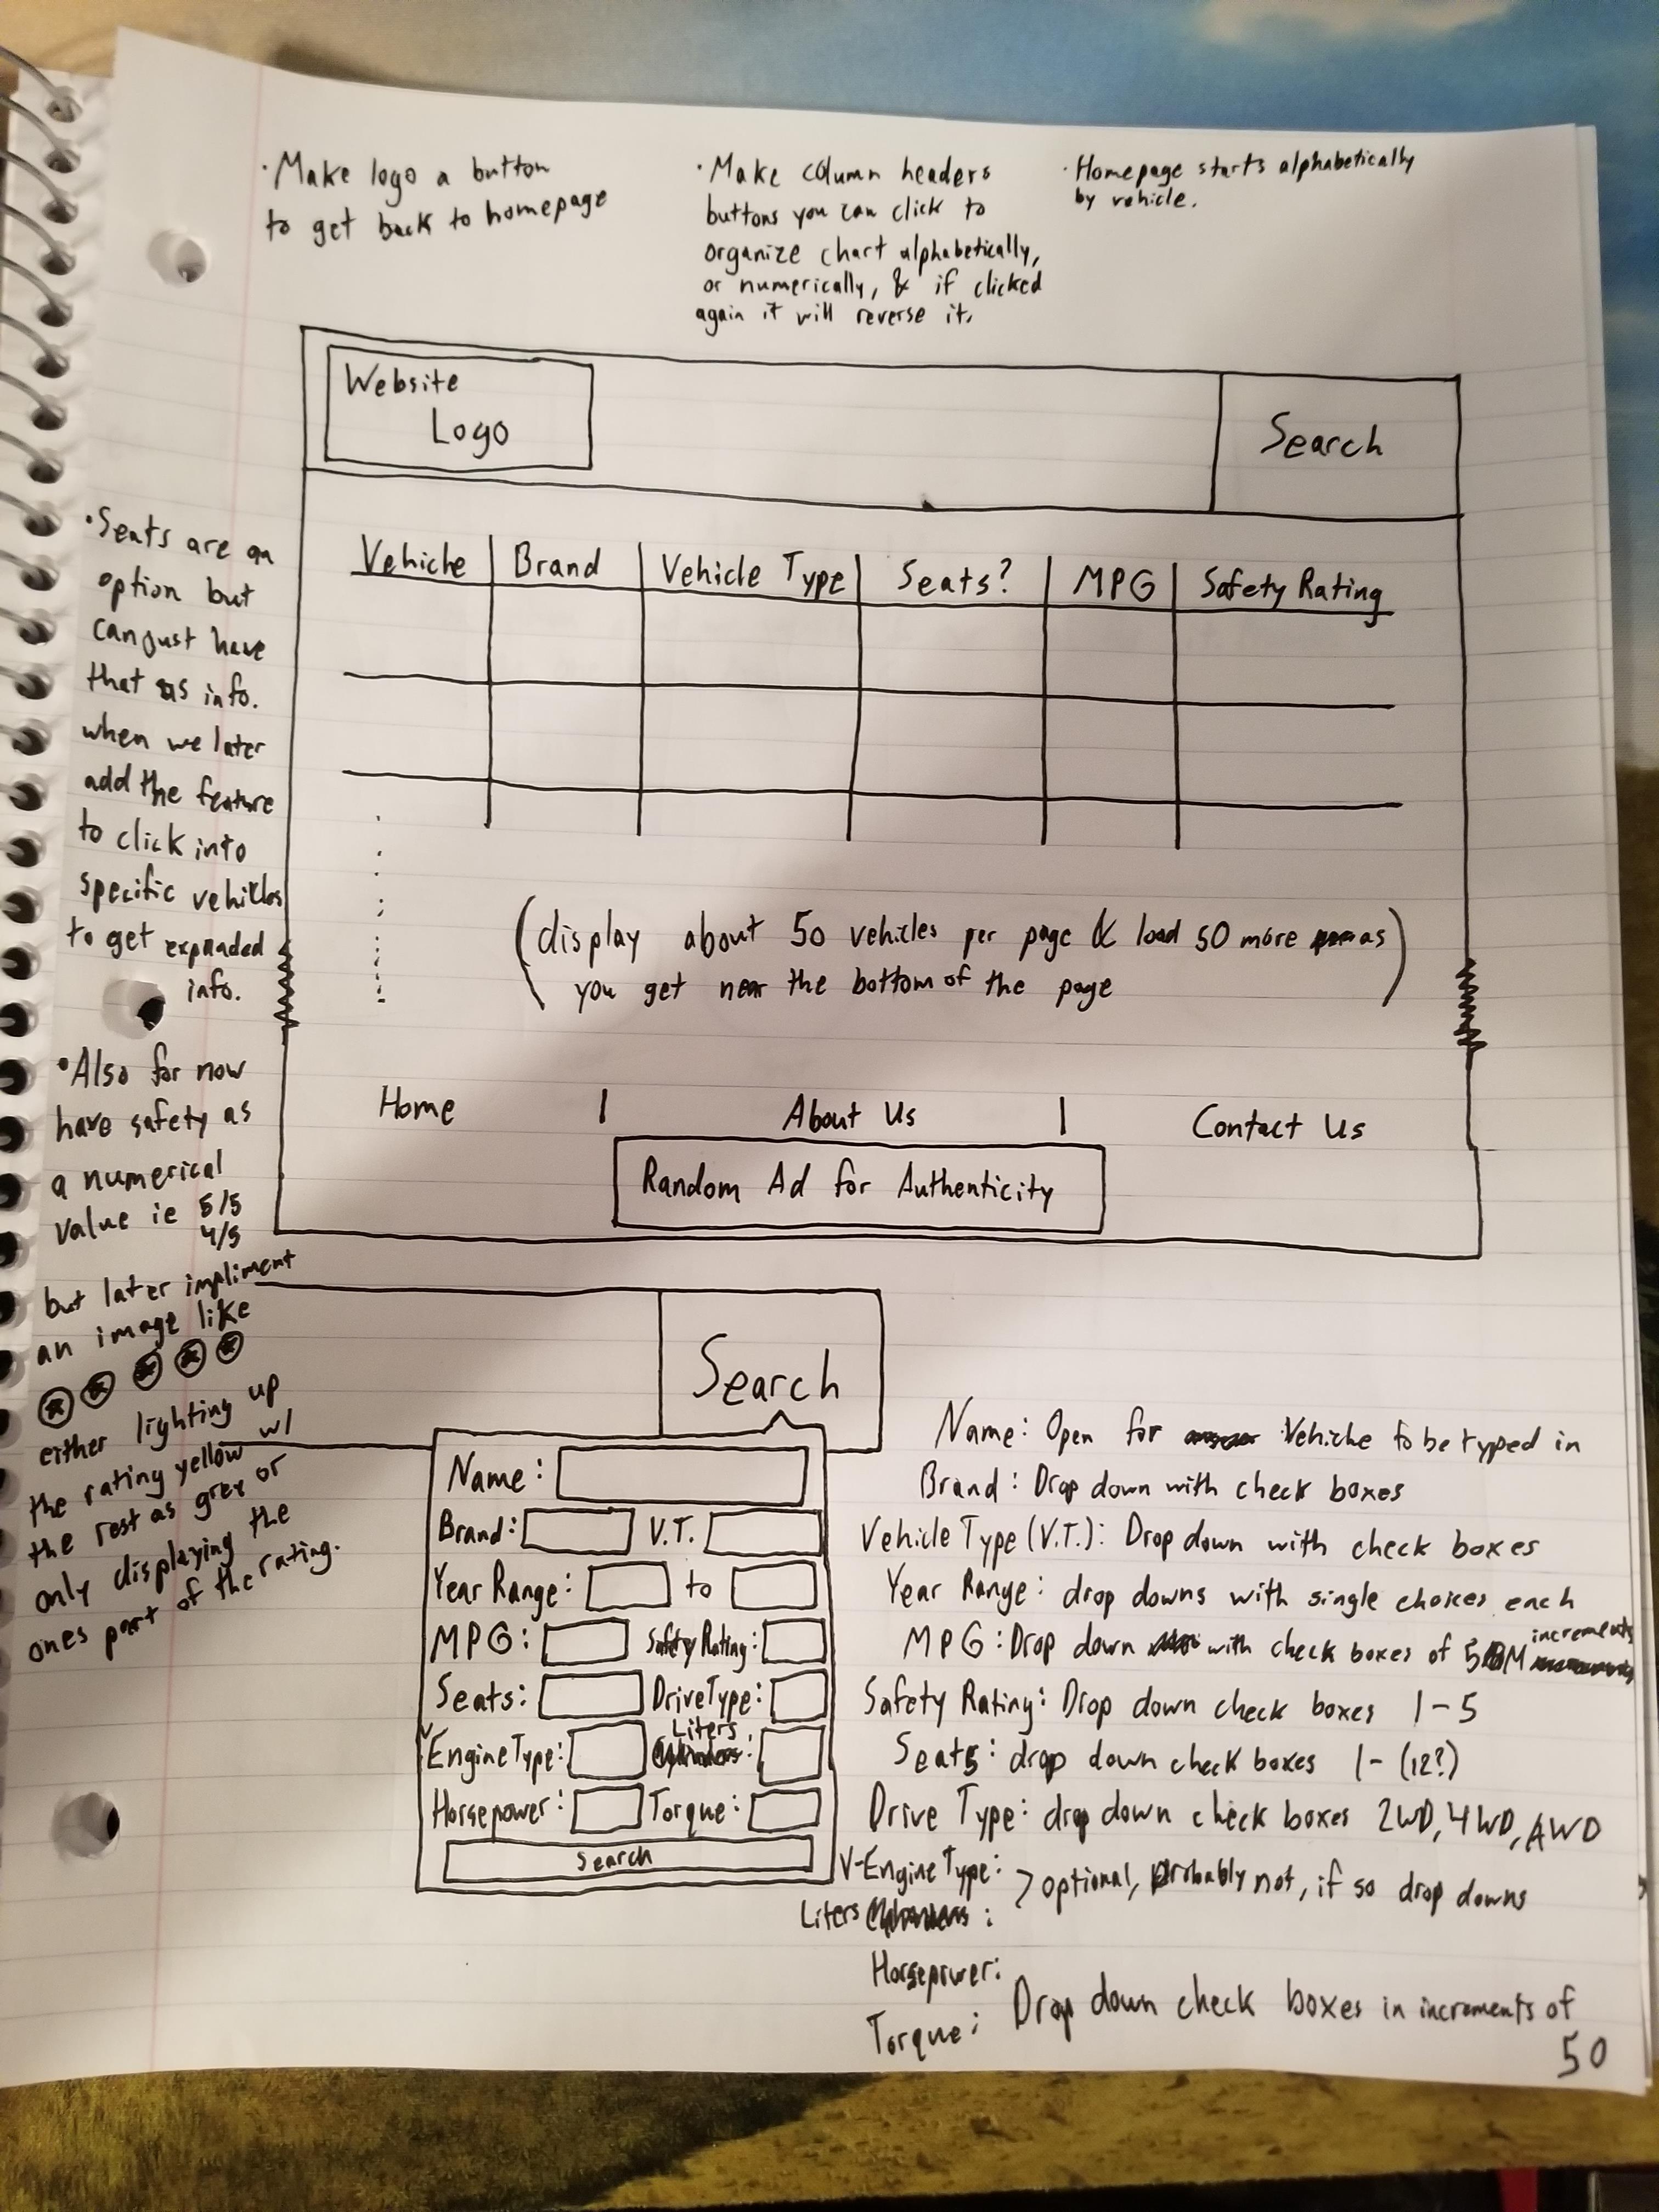 · Make logo a button
to get back to homepage
· Make column headers
buttons you can click to
organize chart alphabetically,
or numerically, & if clicked
again it will reverse it.
· Homepage starts alphabetically
by vehicle.
Website
Logo
Search
Vehicle | Brand | Vehicle Type | Seats? | MPG | Safety Rating
(display about 50 vehicles per page & load 50 more as
you get near the bottom of the page)
Home | About Us | Contact Us
Random Ad for Authenticity
· Seats are an
option but
can just have
that as info.
when we later
add the feature
to click into
specific vehicles
to get expanded
info.
· Also for now
have safety as
a numerical
value ie 5/5
4/5
but later impliment
an image like
either lighting up
the rating yellow w/
the rest as grey or
only displaying the
ones part of the rating.
Search
Name:
Brand: V.T.:
Year Range: to
MPG: Safety Rating:
Seats: Drive Type:
V-Engine Type: Liters:
Horsepower: Torque:
Search
Name: Open for Vehicle to be typed in
Brand: Drop down with check boxes
Vehicle Type (V.T.): Drop down with check boxes
Year Range: drop downs with single choices each
MPG: Drop down with check boxes of 5 increments
Safety Rating: Drop down check boxes 1-5
Seats: drop down check boxes 1-(12?)
Drive Type: drop down check boxes 2WD, 4WD, AWD
V-Engine Type: > optional, probably not, if so drop downs
Liters:
Horsepower: Drop down check boxes in increments of
Torque: 50